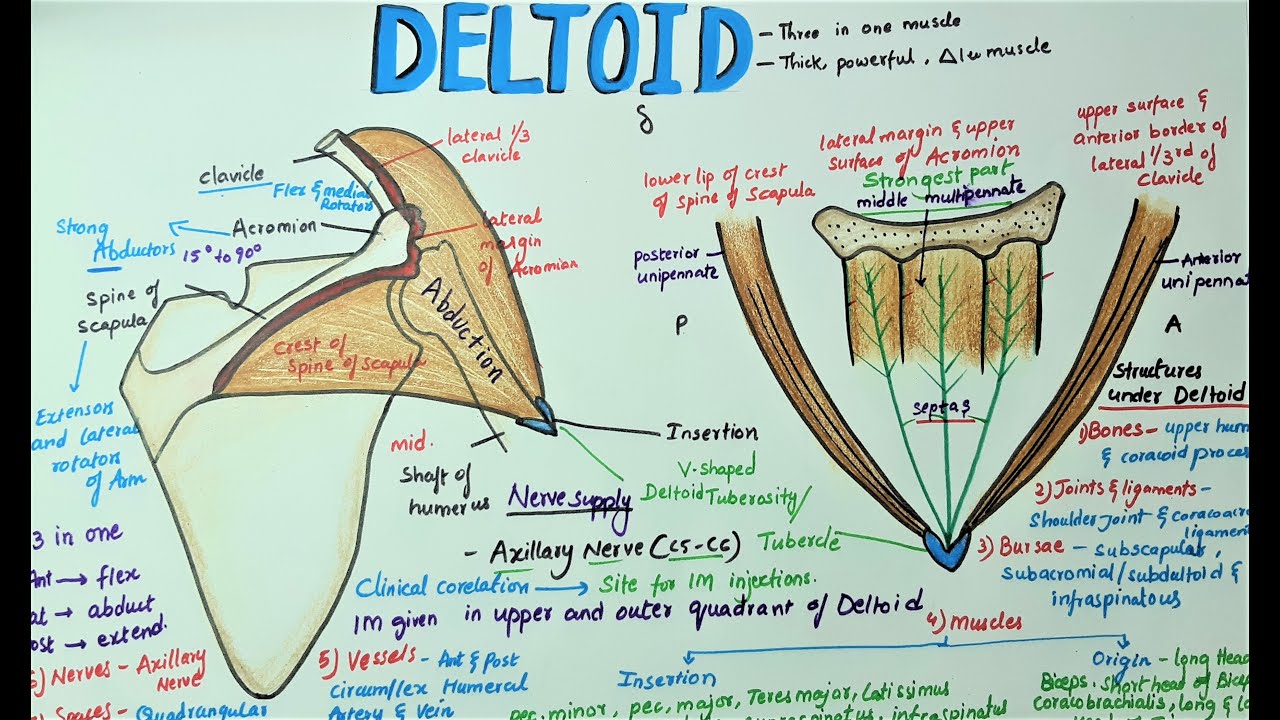 DELTOID
- Three in one muscle
- Thick, powerful, Δlar muscle
lateral 1/3
clavicle
clavicle
Flex & medial
Rotators
Acromion
Strong
Abductors
15° to 90°
lateral
margin
of Acromion
Spine of
scapula
Abduction
Crest of
Spine of Scapula
Extensors
and lateral
rotators
of Arm
mid.
Shaft of
humerus
Insertion
V-shaped
Deltoid Tuberosity/
Tubercle
lower lip of crest
of Spine of Scapula
lateral margin & upper
Surface of Acromion
Strongest part
middle multipennate
upper surface &
anterior border of
lateral 1/3rd of
clavicle
posterior
unipennate
P
Anterior
unipennat
A
septas
Nerve supply
- Axillary Nerve (C5-C6)
Clinical corelation → Site for IM injections.
IM given in upper and outer quadrant of Deltoid
3 in one
Ant → flex
at → abduct
ost → extend.
Structures
under Deltoid
1) Bones - upper hum
& coracoid proces
2) Joints & ligaments -
Shoulder Joint & coracoacro
ligament
3) Bursae - subscapular,
subacromial/subdeltoid &
infraspinatous
4) muscles
Insertion
pec. minor, pec, major, Teres major, Latissimus
supraspinatus, infraspinatus
Origin - long Head
Biceps. short head of Bicep
coracobrachialis, long & la
5) Vessels - Ant & Post
Circumflex Humeral
Artery & Vein
6) Nerves - Axillary
Nerve
Spaces - Quadrangular